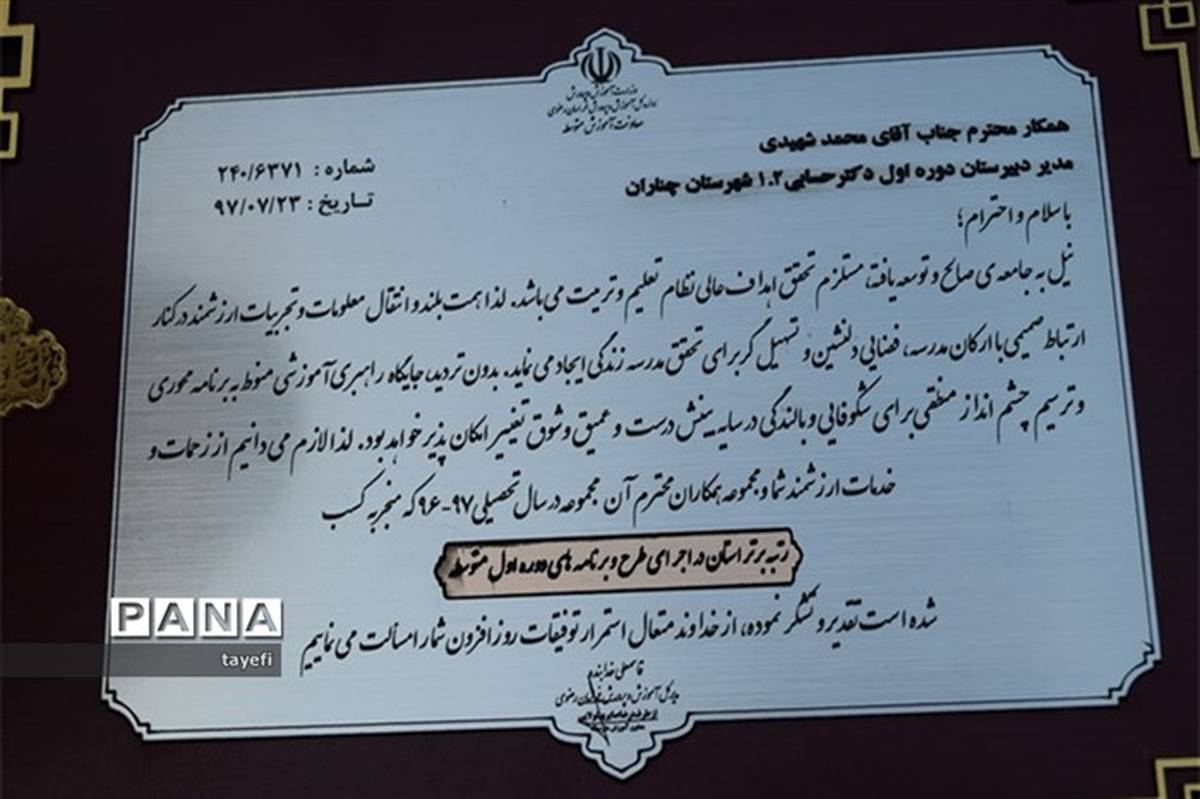 وزارت آموزش و پرورش
اداره کل آموزش و پرورش خراسان رضوی
معاونت آموزش متوسطه
شماره : ۲۴۰/۶۳۷۱
تاریخ : ۹۷/۰۷/۲۳
همکار محترم جناب آقای محمد شهیدی
مدیر دبیرستان دوره اول دکترحسابی۱.۲ شهرستان چناران
با سلام و احترام؛
نیل به جامعه ی صالح و توسعه یافته، مستلزم تحقق اهداف عالی نظام تعلیم و تربیت می باشد. لذا همت بلند و انتقال معلومات و تجربیات ارزشمند در کنار
ارتباط صمیمی با ارکان مدرسه، فضایی دلنشین و تسهیل گر برای تحقق مدرسه زندگی ایجاد می نماید. بدون تردید، جایگاه راهبری آموزشی منوط به برنامه محوری
و ترسیم چشم انداز منطقی برای شکوفایی و بالندگی در سایه بینش درست و عمیق و شوق تغییر امکان پذیر خواهد بود. لذا لازم می دانیم از زحمات و
خدمات ارزشمند شما و مجموعه همکاران محترم آن مجموعه در سال تحصیلی ۹۷-۹۶ که منجر به کسب
رتبه برتر استان در اجرای طرح و برنامه های دوره اول متوسطه
شده است تقدیر و تشکر نموده، از خداوند متعال استمرار توفیقات روز افزون شما را مسألت می نماییم
قاسمعلی خدابنده
مدیرکل آموزش و پرورش خراسان رضوی
PANA
tayefi